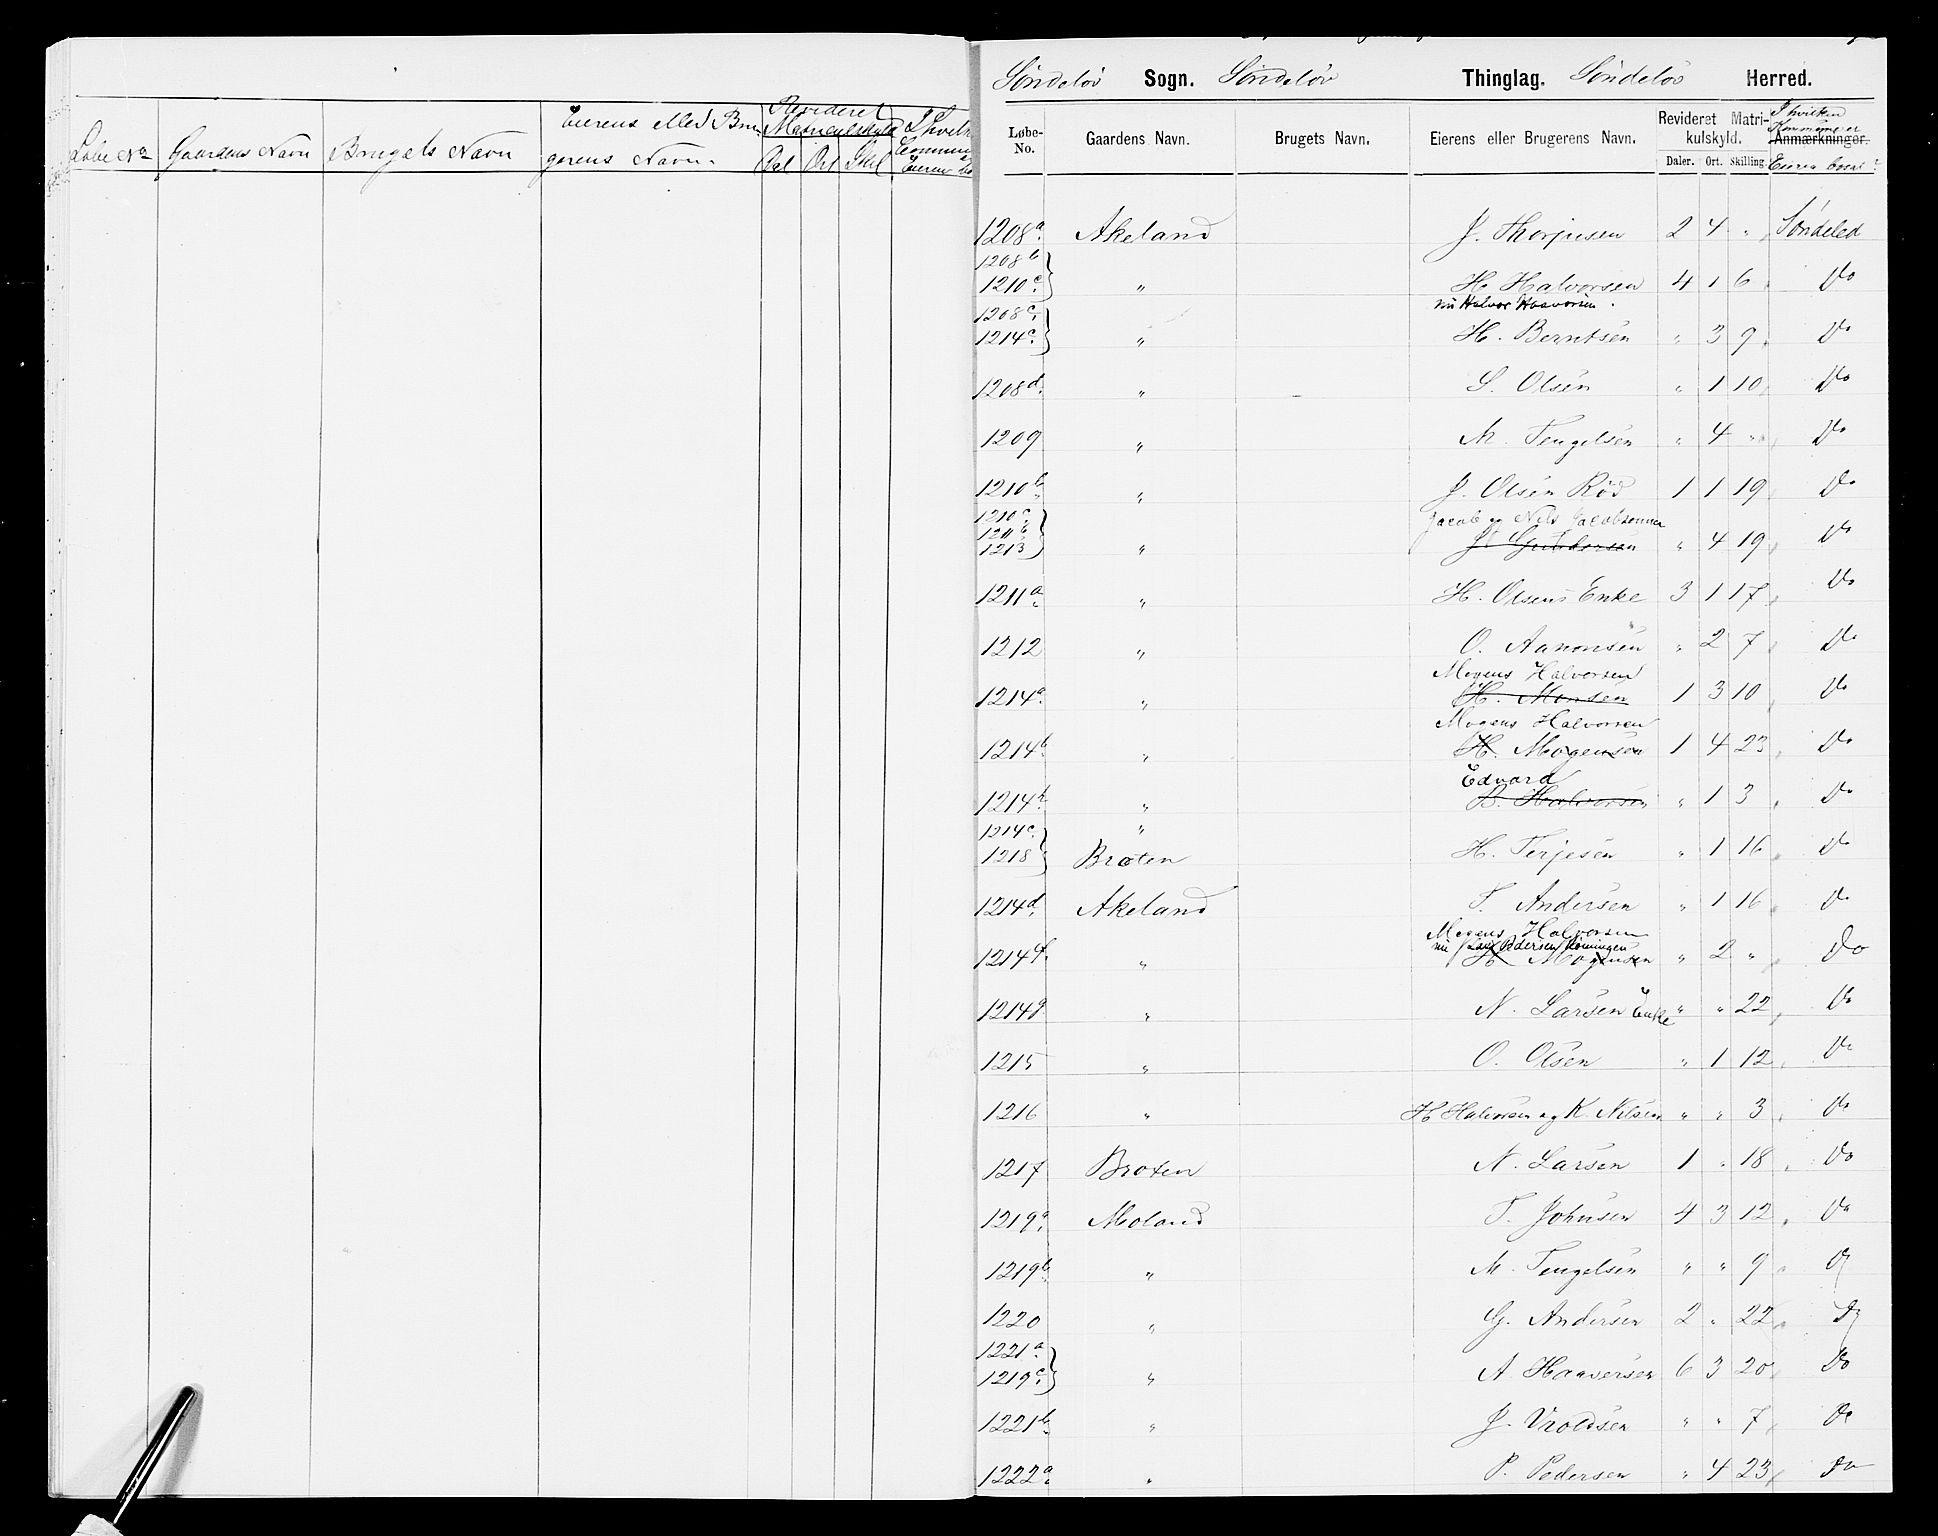 Løbe No
Gaardens Navn
Brugets Navn
Eierens eller Bru-
gerens Navn.
Revideret
Matriculskyld
Dal Ort Skil
Søndeløv Sogn. Søndeløv Thinglag. Søndeløv Herred.
Løbe-No. Gaardens Navn. Brugets Navn. Eierens eller Brugerens Navn. Revideret Matri-kulskyld. I hvilken Kommune er Anmærkninger.
Daler. Ort. Skilling. Eieren bosat?
1208a. Akeland J. Thorjusen 2 4 " Søndeled
1208b
1210c. " H. Halvorsen 4 1 6 Do
nu Halvor Haavorsen.
1208c.
1214c. " H. Berntsen " 3 9 Do
1208d. " S. Olsen " 1 10 Do
1209 " M. Tengelsen " 4 " Do
1210b. " J. Olsen Rød 1 1 19 Do
1210c. Jacob og Nils Jacobsønner
1211b
1213 " J. Gundersen " 4 19 Do
1211a. " H. Olsens Enke 3 1 17 Do
1212 " O. Aanonsen " 2 7 Do
Mogens Halvorsen
1214a. " H. Monsen 1 3 10 Do
Mogens Halvorsen
1214b. " H. Mogensen 1 4 23 Do
Edvard
1214h. " B. Halvorsen " 1 3 Do
1214c. "
1218 Braten H. Terjesen " 1 16 Do
1214d. Akeland T. Andersen " 1 16 Do
Mogens Halvorsen
nu Lars Pedersen
1214f. " H. Mogensen " 2 " Do
1214g. " N. Larsen Enke " " 22 Do
1215 " O. Olsen " 1 12 Do
1216 " H. Halvorsen og K. Nilsen " " 3 Do
1217 Broten N. Larsen 1 " 18 Do
1219a. Moland T. Johnsen 4 3 12 Do
1219b. " M. Tengelsen " " 9 Do
1220 " G. Andersen 2 " 22 Do
1221a.
1219c. " A. Haaversen 6 3 20 Do
1221b. " J. Vroldsen " " 7 Do
1222a. " P. Pedersen " 4 23 Do